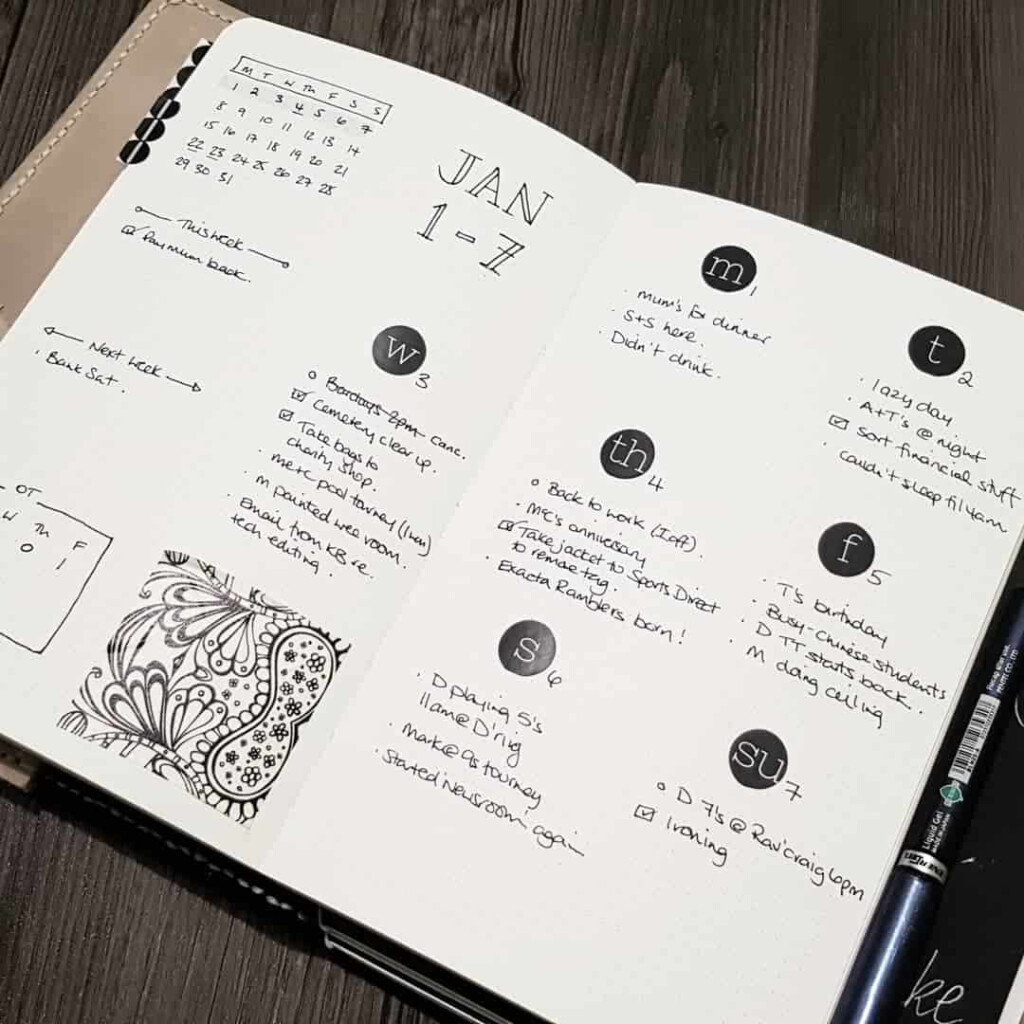 M T W Th F S S
1 2 3 4 5 6 7
8 9 10 11 12 13 14
15 16 17 18 19 20 21
22 23 24 25 26 27 28
29 30 31
JAN
1-7
This week
Pay mum back.
Next week
Bank Sat.
OT
W Th F
O 1
w 3
Barclays 2pm canc.
Cemetery clear up.
Take bags to
charity shop.
me+C pool tourney
M painted wee room.
Email from KB re.
tech editing.
m 1
mum's for dinner
S+S here.
Didn't drink.
t 2
lazy day
A+T's @ night
Sort financial stuff
couldn't sleep til 4am
th 4
Back to work (I off).
M+C's anniversary
Take jacket to Sports Direct
to remove tag.
Exacta Ramblers born!
f 5
T's birthday
Busy-Chinese students
D TT starts back.
M doing ceiling
s 6
D playing 5's
11am@D'rig
Mark@9s tourney
Started 'Newsroom' again
su 7
D 7's @ Rav'craig 6pm
Ironing
Liquid Gel
ke